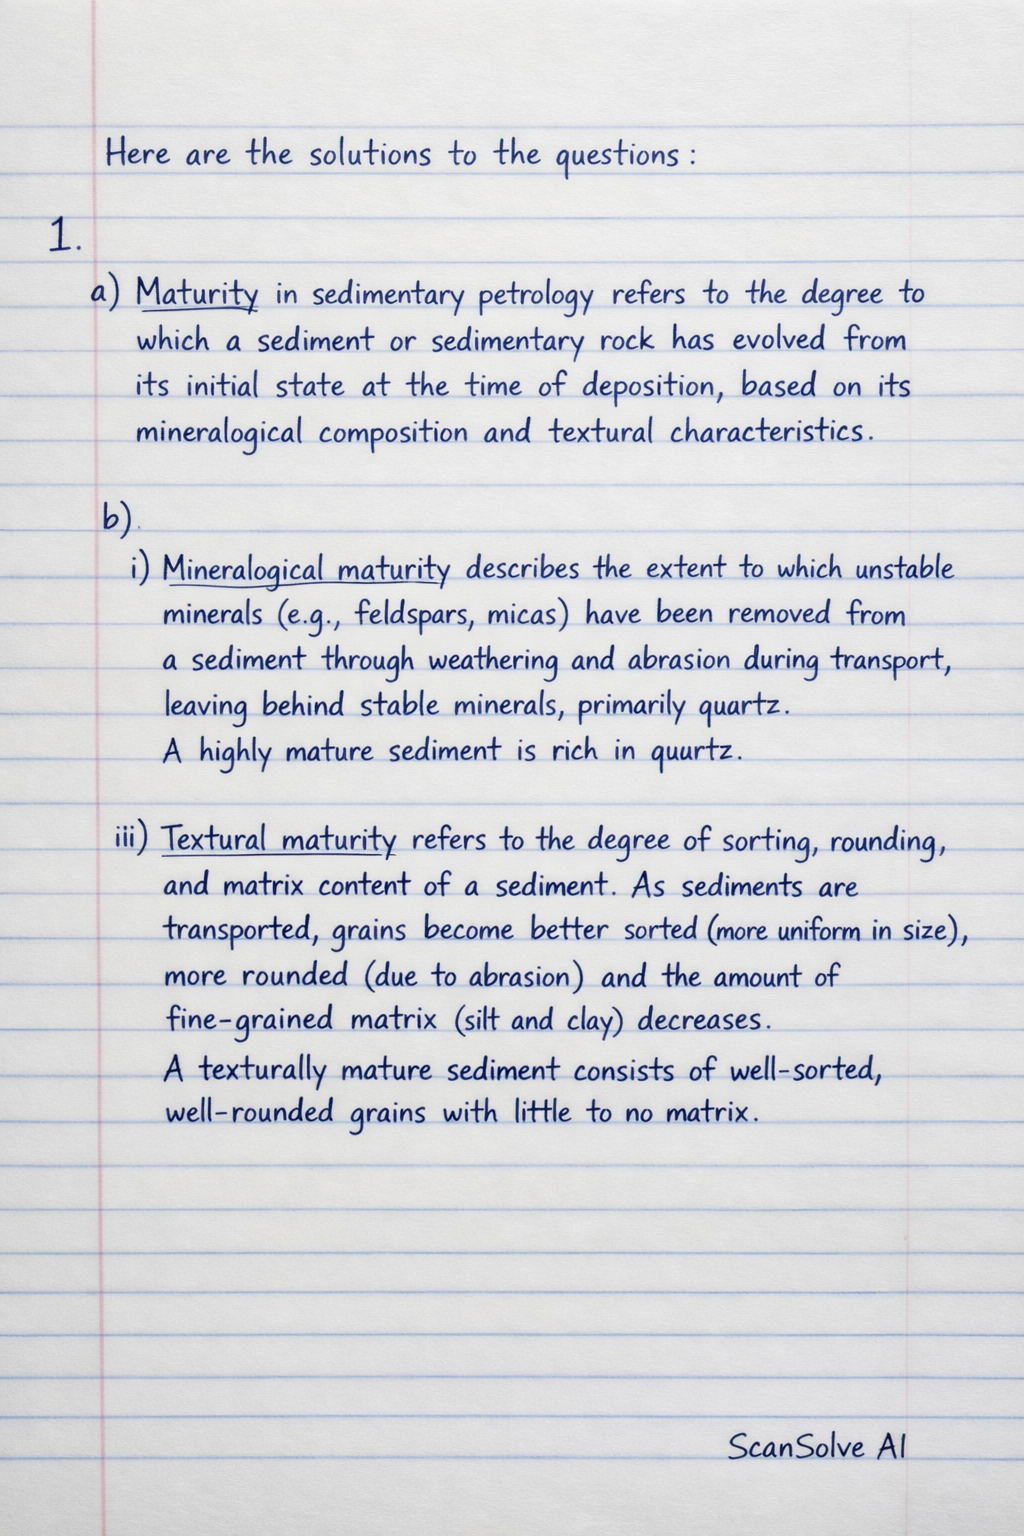 Here are the solutions to the questions :
1.
a) Maturity in sedimentary petrology refers to the degree to
which a sediment or sedimentary rock has evolved from
its initial state at the time of deposition, based on its
mineralogical composition and textural characteristics.
b).
i) Mineralogical maturity describes the extent to which unstable
minerals (e.g., feldspars, micas) have been removed from
a sediment through weathering and abrasion during transport,
leaving behind stable minerals, primarily quartz.
A highly mature sediment is rich in quurtz.
iii) Textural maturity refers to the degree of sorting, rounding,
and matrix content of a sediment. As sediments are
transported, grains become better sorted (more uniform in size),
more rounded (due to abrasion) and the amount of
fine-grained matrix (silt and clay) decreases.
A texturally mature sediment consists of well-sorted,
well-rounded grains with little to no matrix.
ScanSolve AI